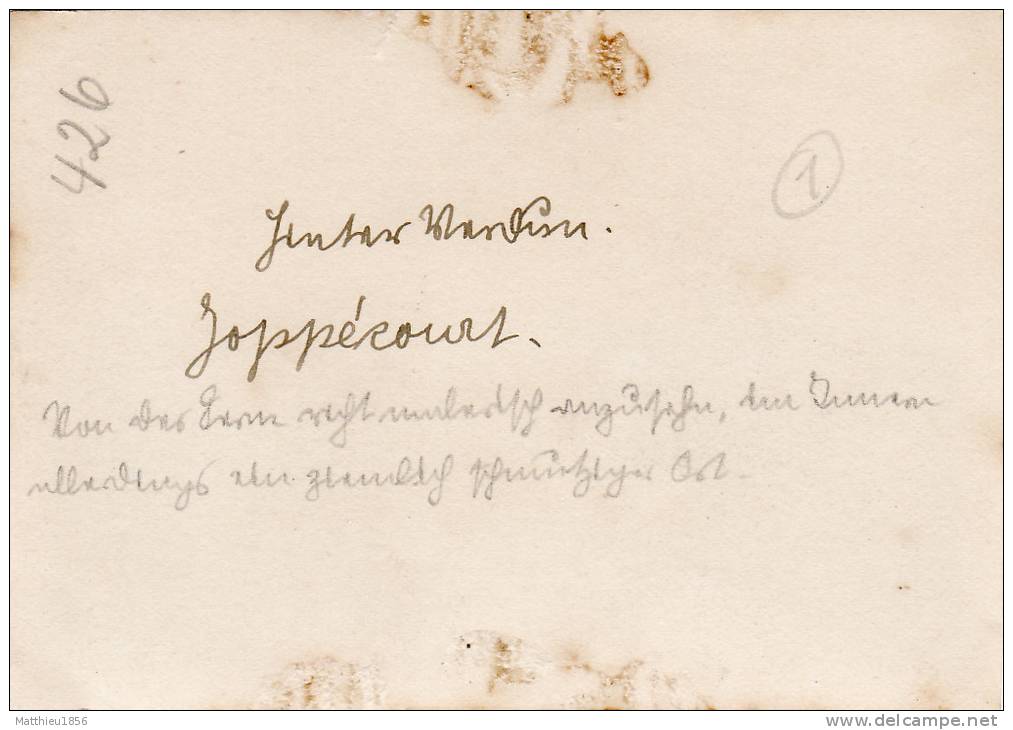 426
1
Hinter Verdun.
Joppécourt.
Von der Ferne recht malerisch anzusehn, im Innern
allerdings ein ziemlich schmutziger Ort.
Matthieu1856
www.delcampe.net